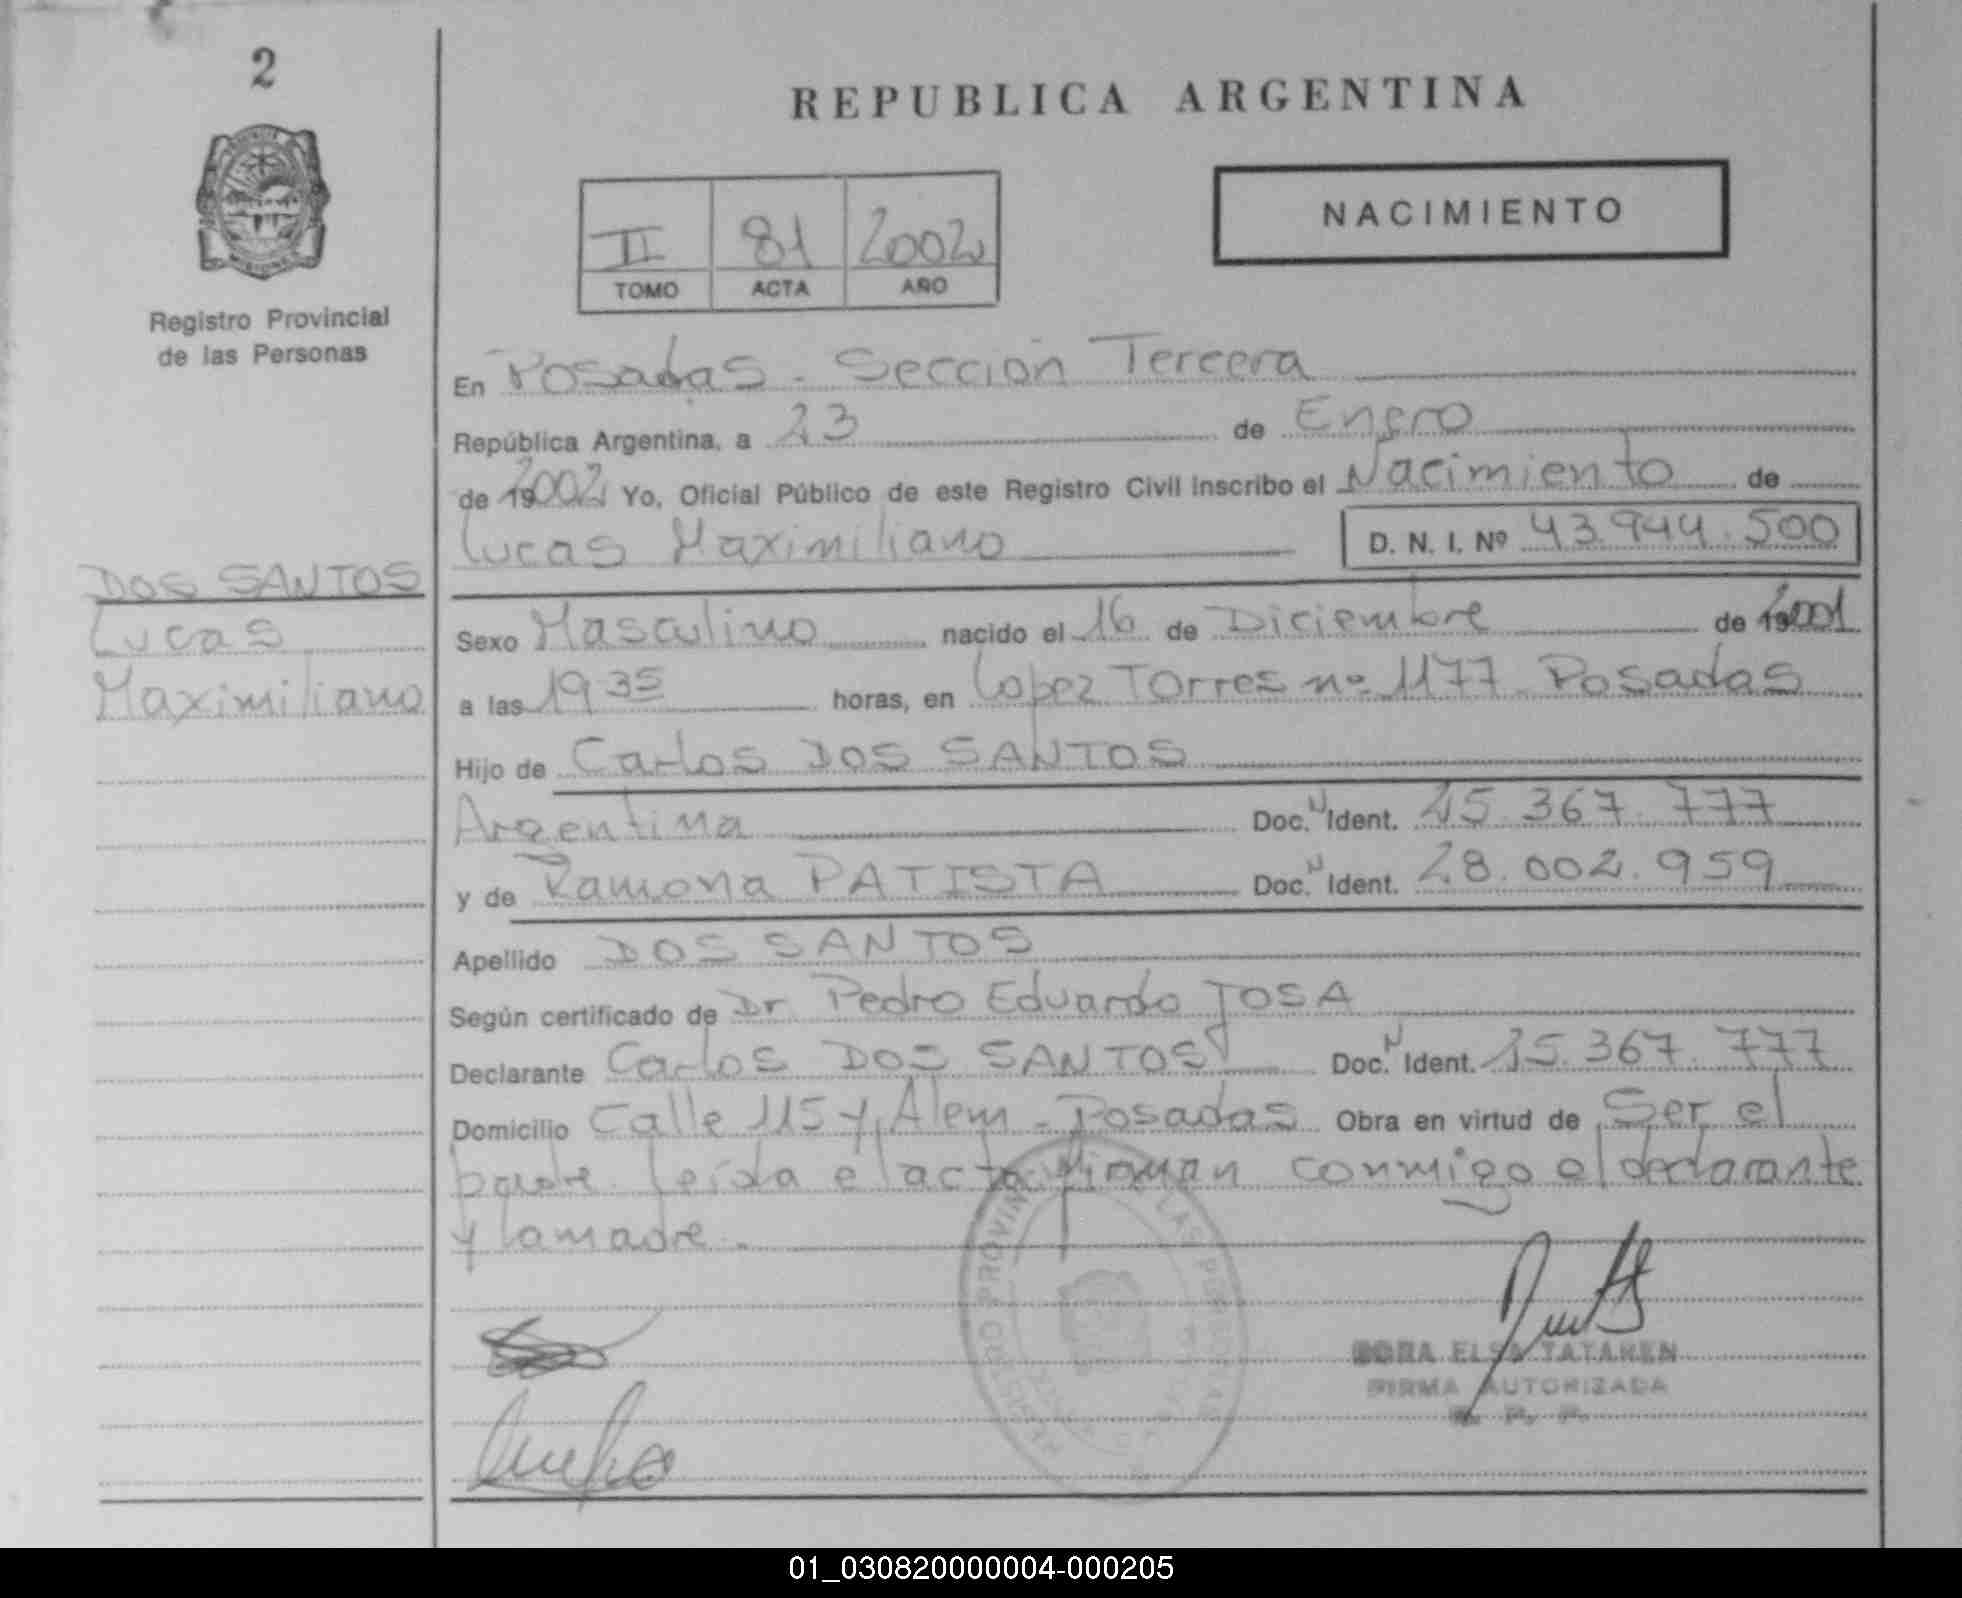 2
REPUBLICA ARGENTINA
NACIMIENTO
II 81 2002
TOMO ACTA AÑO
Registro Provincial
de las Personas
En Posadas - Sección Tercera
República Argentina, a 23 de Enero
de 192002 Yo, Oficial Público de este Registro Civil inscribo el Nacimiento de
Lucas Maximiliano D. N. I. Nº 43.944.500
DOS SANTOS
Lucas
Maximiliano
Sexo Masculino nacido el 16 de Diciembre de 192001
a las 19 35 horas, en Lopez Torres nº 1177 Posadas
Hijo de Carlos DOS SANTOS
Argentina Doc. N Ident. 15.367.777
y de Ramona PATISTA Doc. N Ident. 28.002.959
Apellido DOS SANTOS
Según certificado de Dr Pedro Eduardo JOSA
Declarante Carlos DOS SANTOS Doc. N Ident. 15.367.777
Domicilio Calle 115 y Alem - Posadas Obra en virtud de Ser el
padre leida el acta firman conmigo el declarante
y la madre.
REGISTRO PROVIN LAS PERSONAS
ELSA TATAREN
FIRMA AUTORIZADA
R. P. P.
01_030820000004-000205